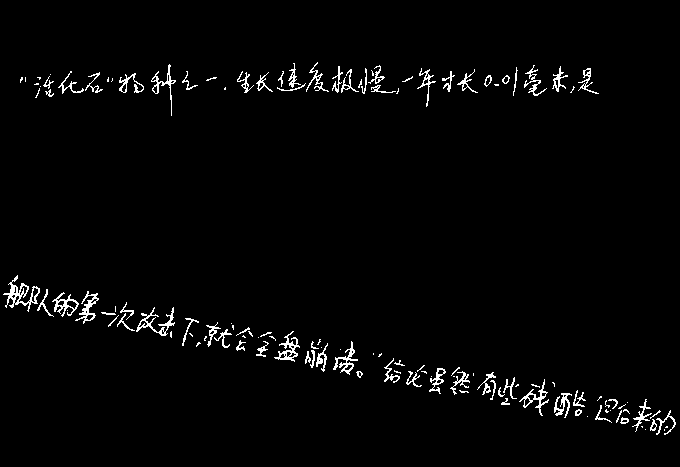 “活化石”物种之一.生长速度极慢,一年才长0.01毫米,是
舰队的第一次攻击下,就会全盘崩溃。”结论虽然有些残酷.但后来的